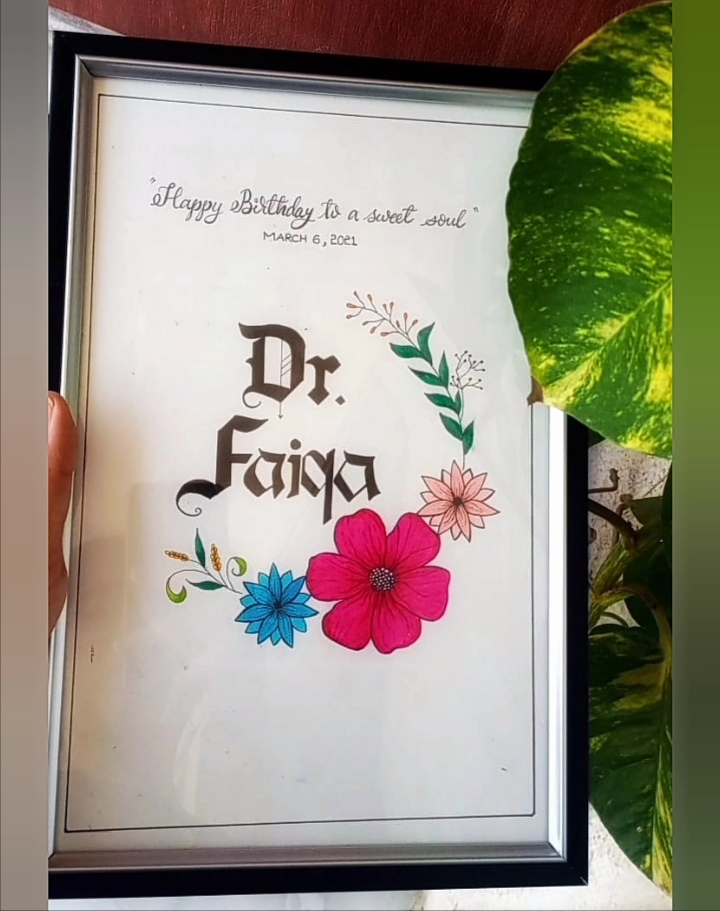 "Happy Birthday to a sweet soul"
MARCH 6, 2021
Dr.
Faiqa